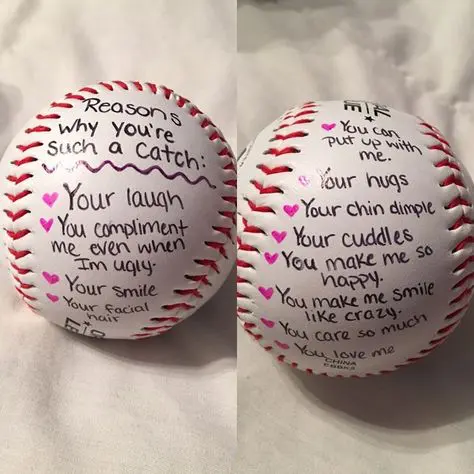 Reasons
why you're
such a catch:
Your laugh
You compliment
me even when
I'm ugly.
Your smile
Your facial
hair
You can
put up with
me.
Your hugs
Your chin dimple
Your cuddles
You make me so
happy.
You make me smile
like crazy.
You care so much
You love me
CHINA